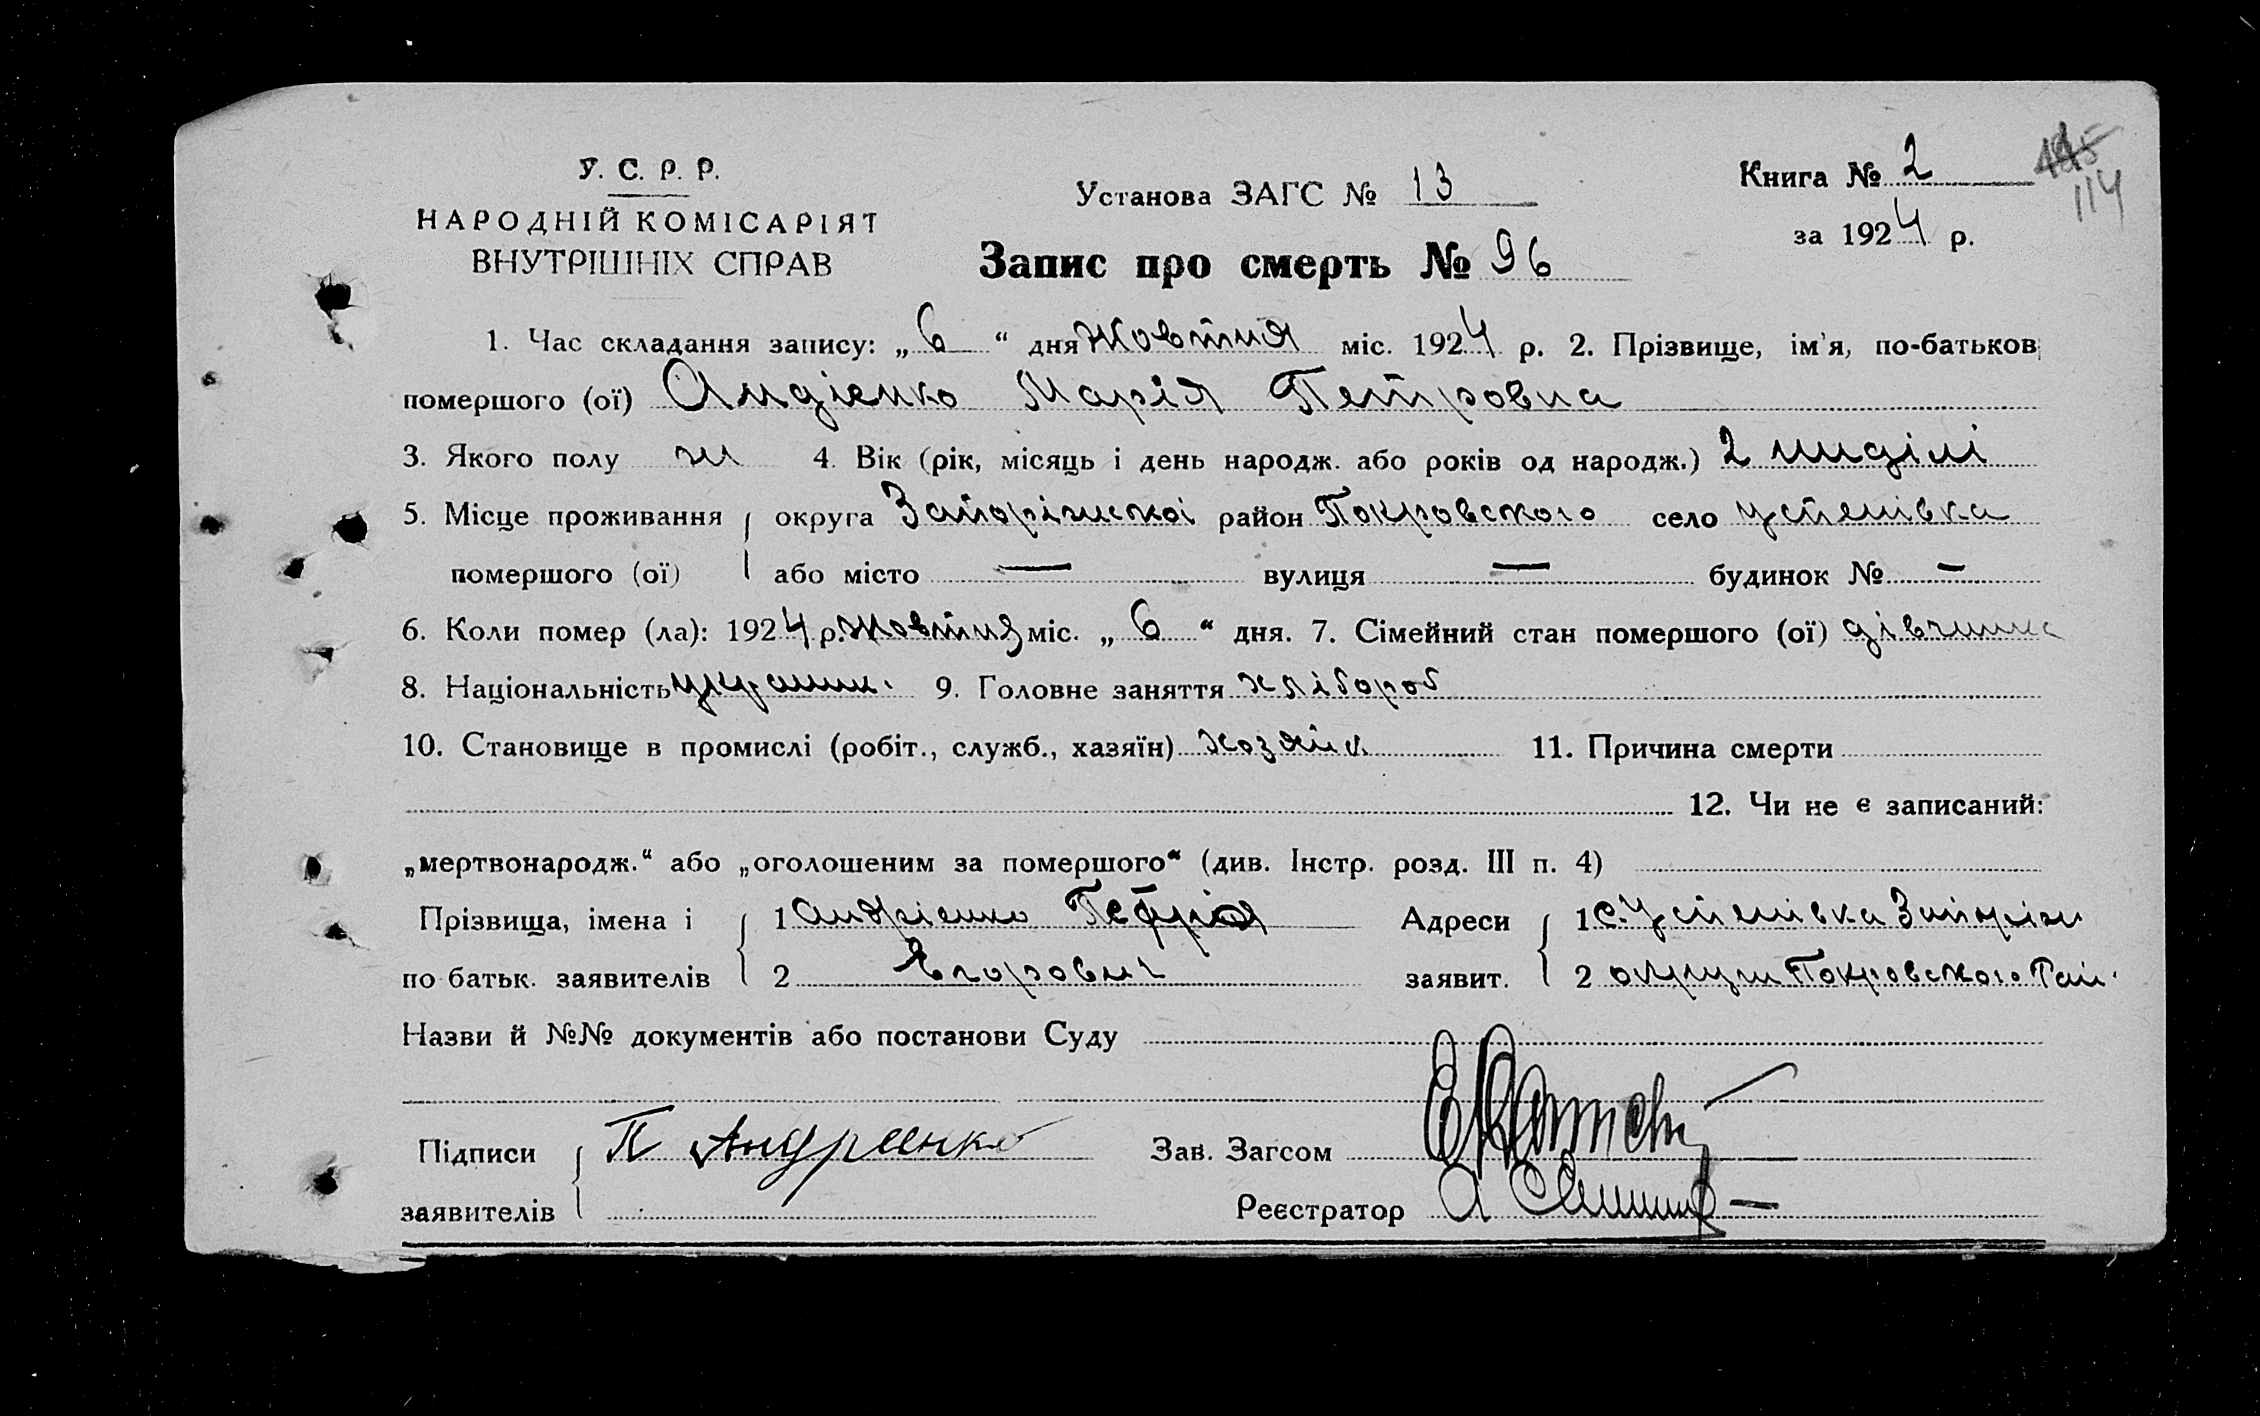 У. С. Р. Р.
НАРОДНІЙ КОМІСАРІЯТ
ВНУТРІШНІХ СПРАВ
Установа ЗАГС № 13
Книга № 2
114
за 1924 р.
Запис про смерть № 96
1. Час складання запису: „6“ дня жовтня міс. 1924 р. 2. Прізвище, ім'я, по-батьков
помершого (ої) Андієнко Марія Петровна
3. Якого полу ж 4. Вік (рік, місяць і день народж. або років од народж.) 2 ниділі
5. Місце проживання округа Запоріжської район Покровського село Успенівка
помершого (ої) або місто — вулиця — будинок № —
6. Коли помер (ла): 1924 р. жовтня міс. „6“ дня. 7. Сімейний стан помершого (ої) дівчина
8. Національність украинк. 9. Головне заняття хлібороб
10. Становище в промислі (робіт., служб., хазяїн) хозяїн 11. Причина смерти
12. Чи не є записаний:
„мертвонародж.“ або „оголошеним за помершого“ (див. Інстр. розд. III п. 4)
Прізвища, імена і 1 Андрієнко Адреси 1 с. Успенівка Запоріж
по батьк. заявителів 2 Егорович заявит. 2 округи Покровського Рай.
Назви й №№ документів або постанови Суду
Підписи П Андреенко Зав. Загсом
заявителів Реєстратор